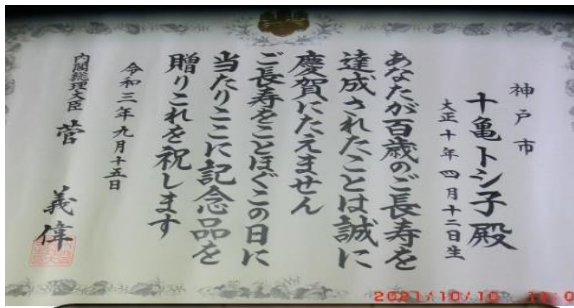 神戸市
十亀トシ子殿
大正十年四月十二日生
あなたが百歳のご長寿を
達成されたことは誠に
慶賀にたえません
ご長寿をことほぐこの日に
当たりここに記念品を
贈りこれを祝します
令和三年九月十五日
内閣総理大臣 菅 義偉
2021/10/10